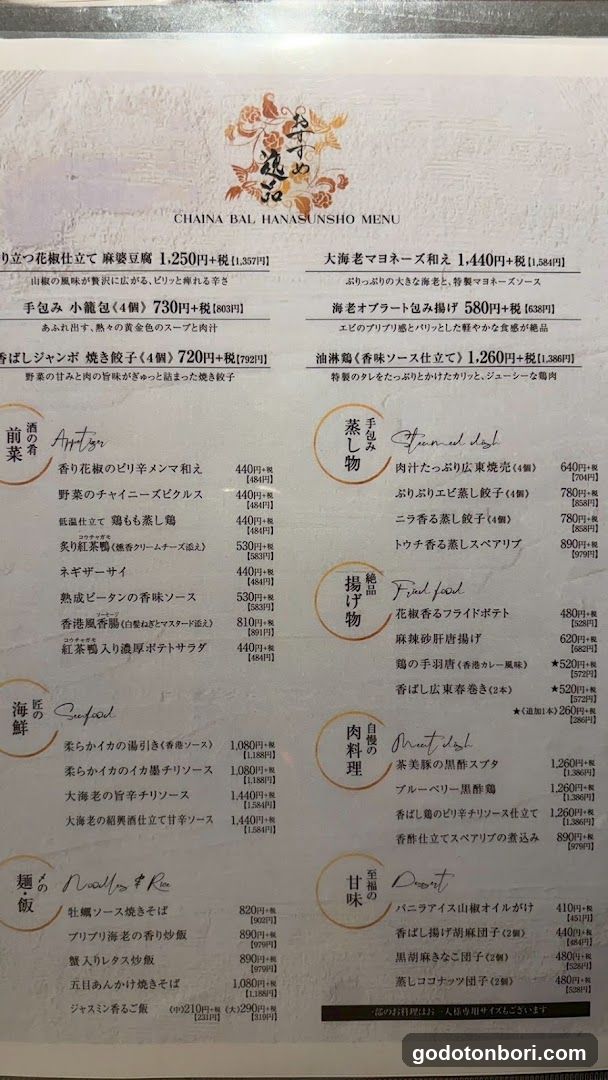 おすすめ
逸品
CHAINA BAL HANASUNSHO MENU
り立つ花椒仕立て 麻婆豆腐 1,250円+税【1,357円】
山椒の風味が贅沢に広がる、ピリッと痺れる辛さ
手包み 小籠包《4個》 730円+税【803円】
あふれ出す、熱々の黄金色のスープと肉汁
香ばしジャンボ 焼き餃子《4個》 720円+税【792円】
野菜の甘みと肉の旨味がぎゅっと詰まった焼き餃子
大海老マヨネーズ和え 1,440円+税【1,584円】
ぷりっぷりの大きな海老と、特製マヨネーズソース
海老オブラート包み揚げ 580円+税【638円】
エビのプリプリ感とパリッとした軽やかな食感が絶品
油淋鶏《香味ソース仕立て》 1,260円+税【1,386円】
特製のタレをたっぷりとかけたカリッと、ジューシーな鶏肉
酒の肴
前菜
Appetizer
香り花椒のピリ辛メンマ和え 440円+税
【484円】
野菜のチャイニーズピクルス 440円+税
【484円】
低温仕立て 鶏もも蒸し鶏 440円+税
【484円】
コウチャガモ
炙り紅茶鴨《燻香クリームチーズ添え》 530円+税
【583円】
ネギザーサイ 440円+税
【484円】
熟成ピータンの香味ソース 530円+税
【583円】
ソーセージ
香港風香腸《白髪ねぎとマスタード添え》 810円+税
【891円】
コウチャガモ
紅茶鴨入り濃厚ポテトサラダ 440円+税
【484円】
匠の
海鮮
Seafood
柔らかイカの湯引き《香港ソース》 1,080円+税
【1,188円】
柔らかイカのイカ墨チリソース 1,080円+税
【1,188円】
大海老の旨辛チリソース 1,440円+税
【1,584円】
大海老の紹興酒仕立て甘辛ソース 1,440円+税
【1,584円】
〆の
麺・飯
Noodles & Rice
牡蠣ソース焼きそば 820円+税
【902円】
プリプリ海老の香り炒飯 890円+税
【979円】
蟹入りレタス炒飯 890円+税
【979円】
五目あんかけ焼きそば 1,080円+税
【1,188円】
ジャスミン香るご飯 《中》210円+税 《大》290円+税
【231円】 【319円】
手包み
蒸し物
Steamed dish
肉汁たっぷり広東焼売《4個》 640円+税
【704円】
ぷりぷりエビ蒸し餃子《4個》 780円+税
【858円】
ニラ香る蒸し餃子《4個》 780円+税
【858円】
トウチ香る蒸しスペアリブ 890円+税
【979円】
絶品
揚げ物
Fried food
花椒香るフライドポテト 480円+税
【528円】
麻辣砂肝唐揚げ 620円+税
【682円】
鶏の手羽唐《香港カレー風味》 ★520円+税
【572円】
香ばし広東春巻き《2本》 ★520円+税
【572円】
★《追加1本》260円+税
【286円】
自慢の
肉料理
Meat dish
茶美豚の黒酢スブタ 1,260円+税
【1,386円】
ブルーベリー黒酢鶏 1,260円+税
【1,386円】
香ばし鶏のピリ辛チリソース仕立て 1,260円+税
【1,386円】
香酢仕立てスペアリブの煮込み 890円+税
【979円】
至福の
甘味
Dessert
バニラアイス山椒オイルがけ 410円+税
【451円】
香ばし揚げ胡麻団子《2個》 440円+税
【484円】
黒胡麻きなこ団子《2個》 480円+税
【528円】
蒸しココナッツ団子《2個》 480円+税
【528円】
一部のお料理はお一人様専用サイズもございます
godotonbori.com